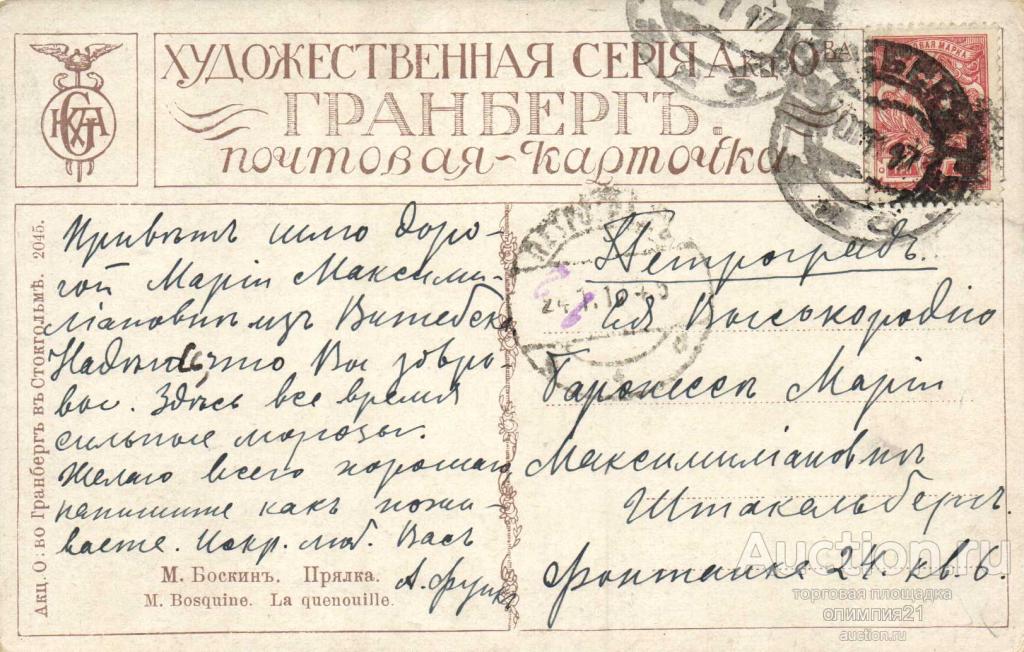 ХУДОЖЕСТВЕННАЯ СЕРІЯ АКЦ. О-ВА
ГРАНБЕРГЪ.
ПОЧТОВАЯ-КАРТОЧКА
Акц. О:во Гранбергъ въ Стокгольмѣ. 2045.
Привѣтъ шлю доро-
гой Маріи Максими-
ліановнѣ изъ Витебска
Надѣюсь, что Вы здоро-
вы. Здѣсь все время
сильные морозы.
Желаю всего хорошаго,
напишите какъ пожи-
ваете. Искр. люб. Васъ
А. Функ
М. Боскинъ. Прялка.
M. Bosquine. La quenouille.
Петроградъ.
Ея Высокородію
Баронессѣ Маріи
Максимиліановнѣ
Штакельбергъ.
Фонтанка 24. кв. 6.
Auction.ru
торговая площадка
олимпия21
auction.ru